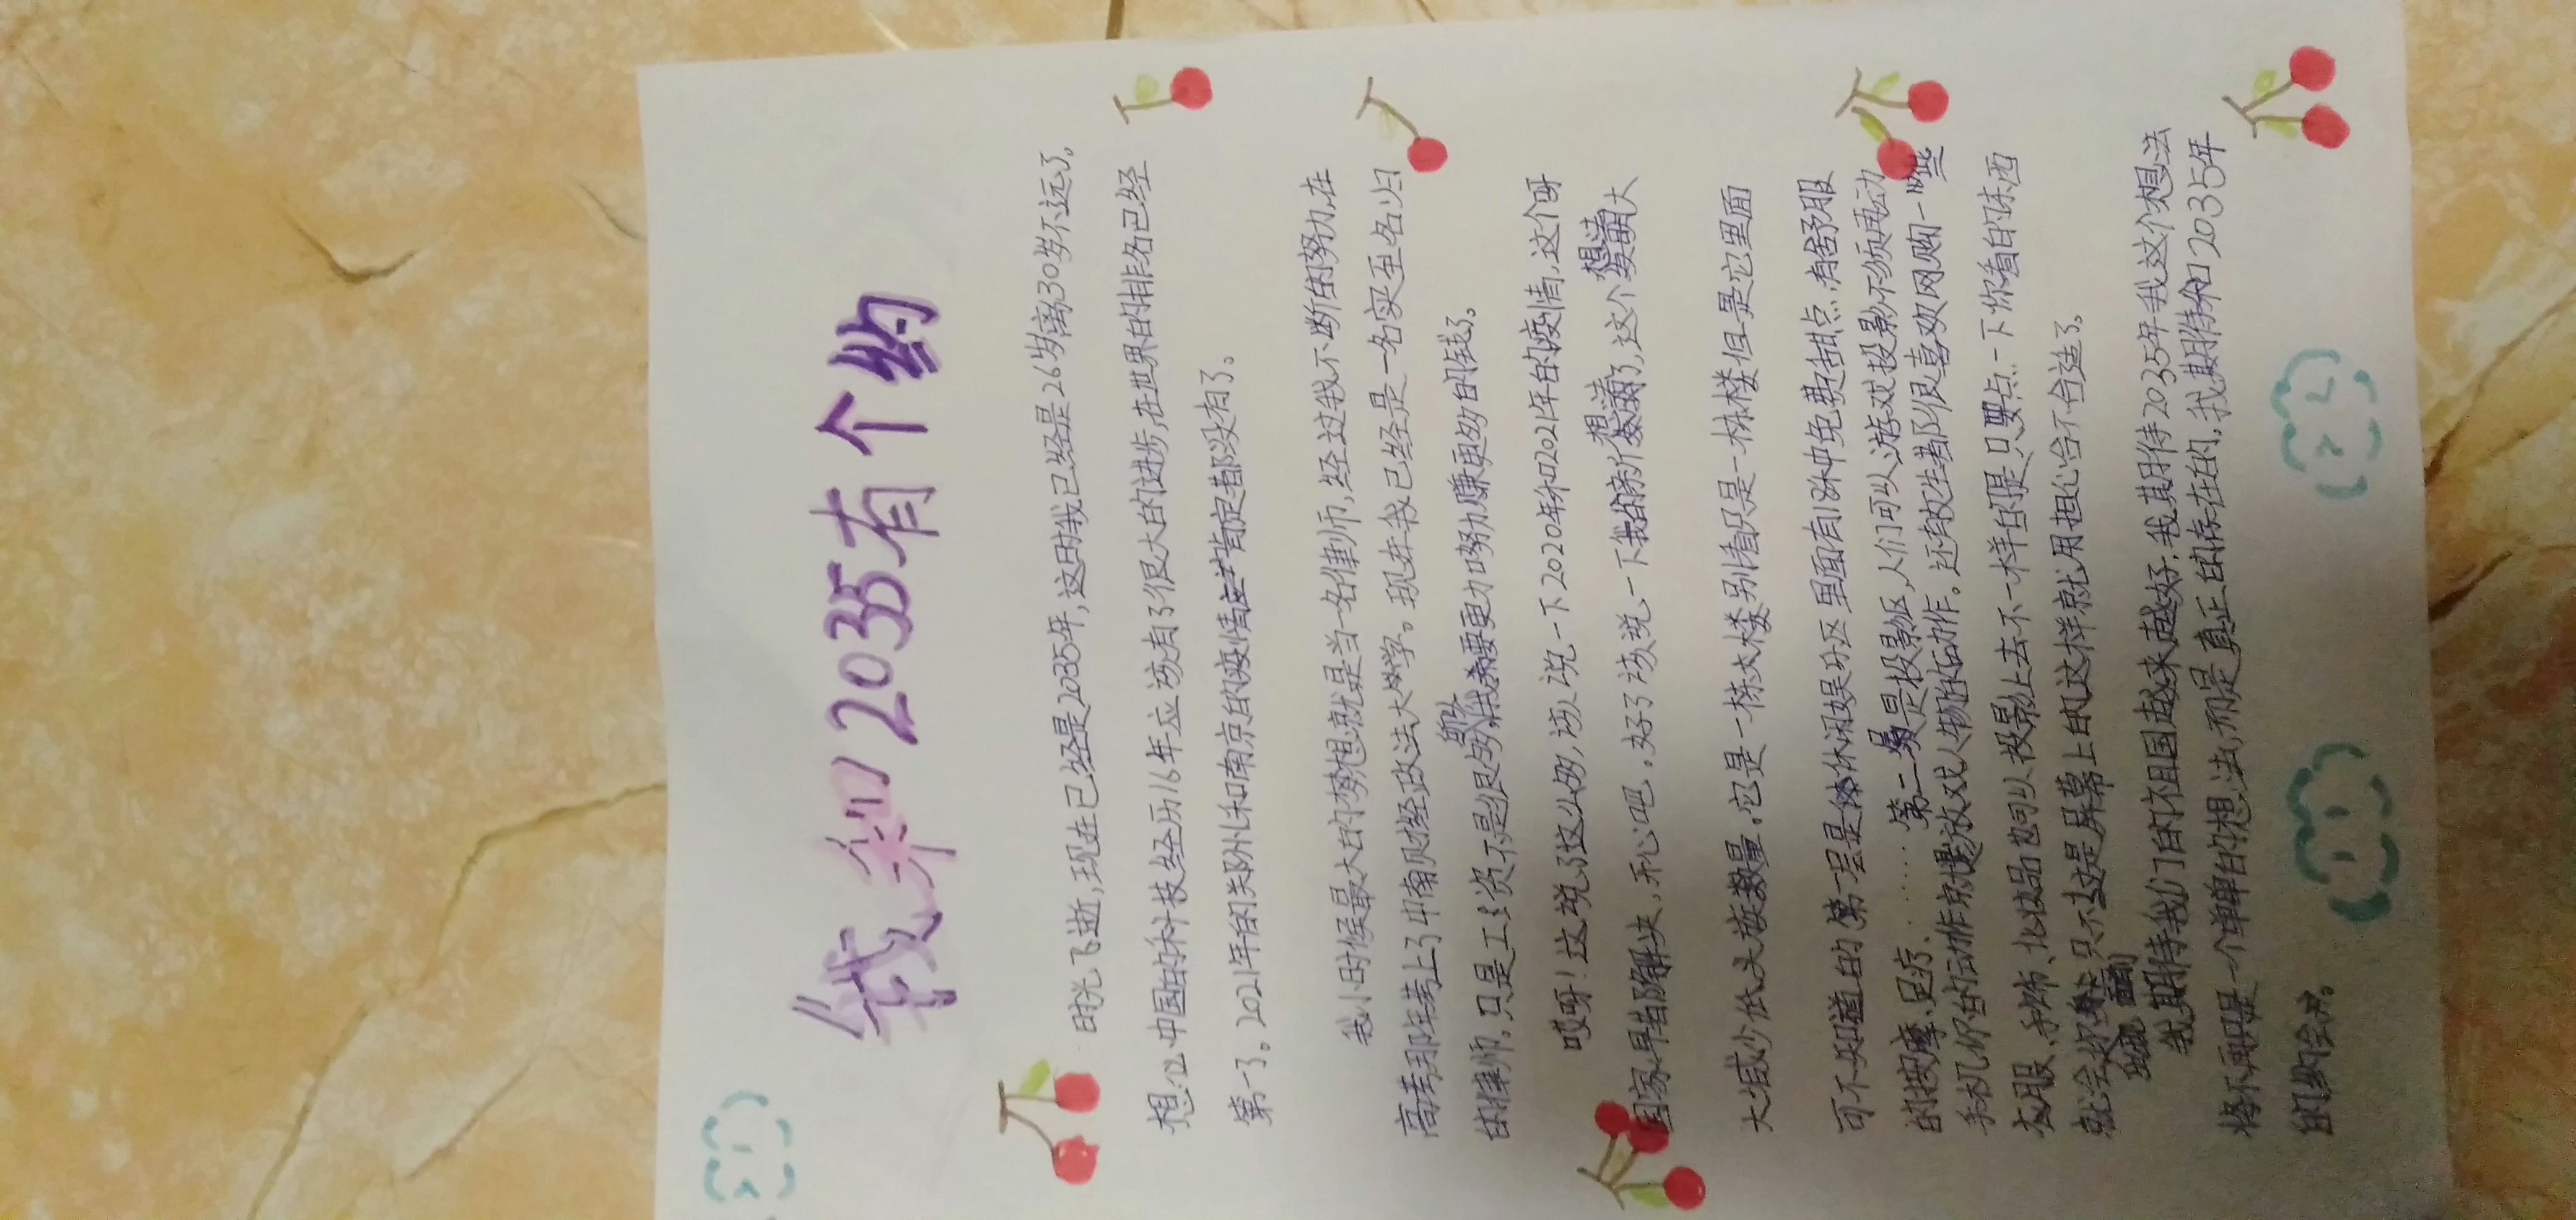 我和2035有个约
时光飞逝,现在已经是2035年,这时我已经是26岁离30岁不远了。
想必中国的科技经历16年应该有了很大的进步,在世界的排名已经
第一了。2021年的郑州和南京的疫情肯定都没有了。
我小时候最大的梦想就是当一名律师,经过我不断的努力,在
高考那年考上了中南财经政法大学。现在我已经是一名实至名归
的律师,只是工资不是很多,我要更加努力赚更多的钱了。
哎呀!这说了这么多,该说一下2020年和2021年的疫情,这个呀
国家早都解决,开心吧。好了该说一下我的新想法了,这个想法大
大减少低头族数量,它是一栋大楼别看只是一栋楼但是它里面
可不知道的第一层是休闲娱乐区里面有18种免费甜点,有舒服
的按摩、足疗……第二是投影区,人们可以游戏投影不须再动
手机,你的动作就是游戏人物的动作。还有女生都很喜欢网购一些
衣服、和饰、化妆品也可以投影上去不一样的是只要点一下你看的东西
就会出现只不过是屏幕上的这样就用担心合不合适了。
我期待我们的祖国越来越好,我期待2035年我这个想法
将不再是一个单单的想法,而是真正的存在的,我期待和2035年
的约会。